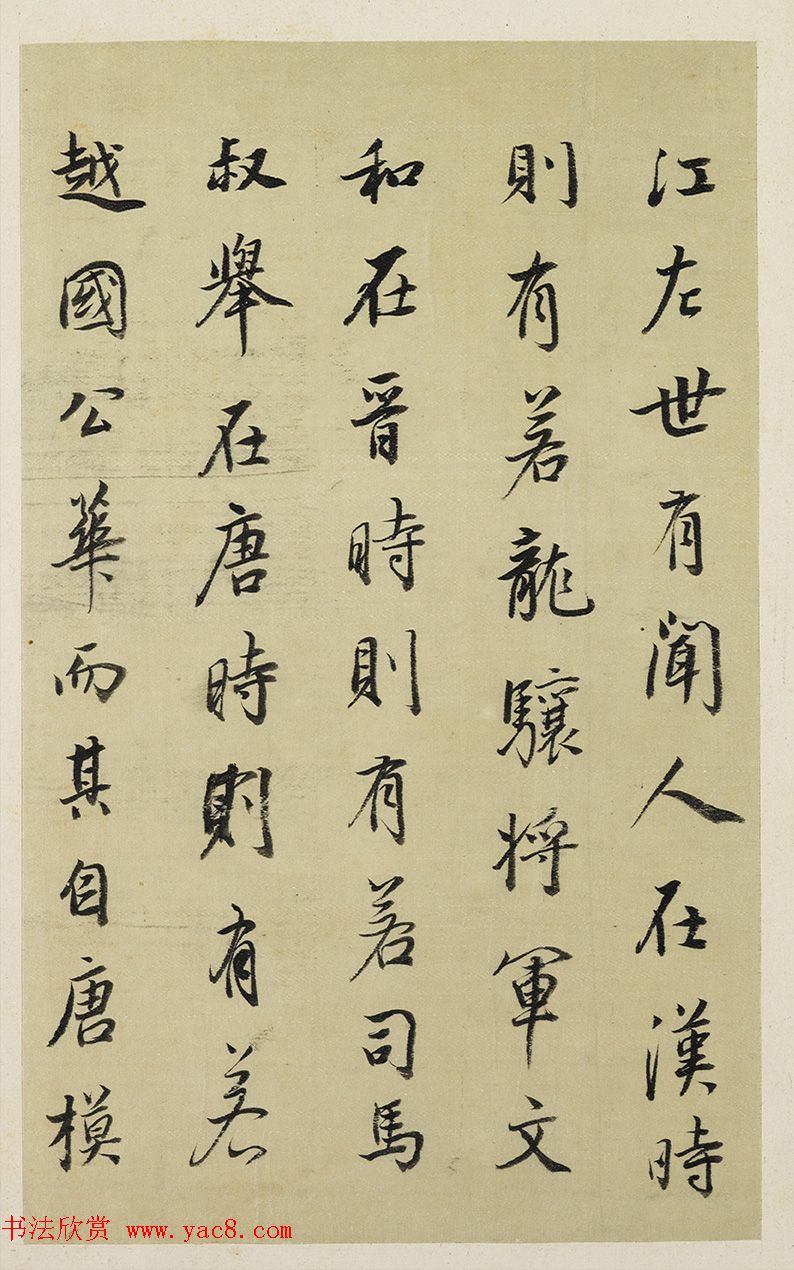 江左世有聞人在漢時
則有若龍驤將軍文
和在晉時則有若司馬
叔舉在唐時則有若
越國公華而其自唐模
书法欣赏 www.yac8.com